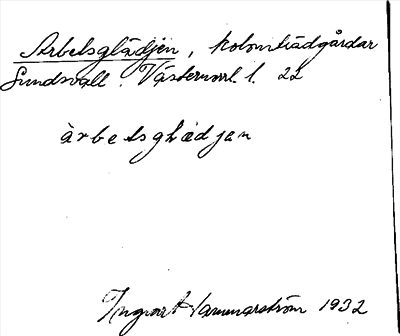 Arbetsglädjen, koloniträdgårdar
Sundsvall. Västernorrl. l. 22
àrbetsglædjan
Ingvar Hammarström 1932